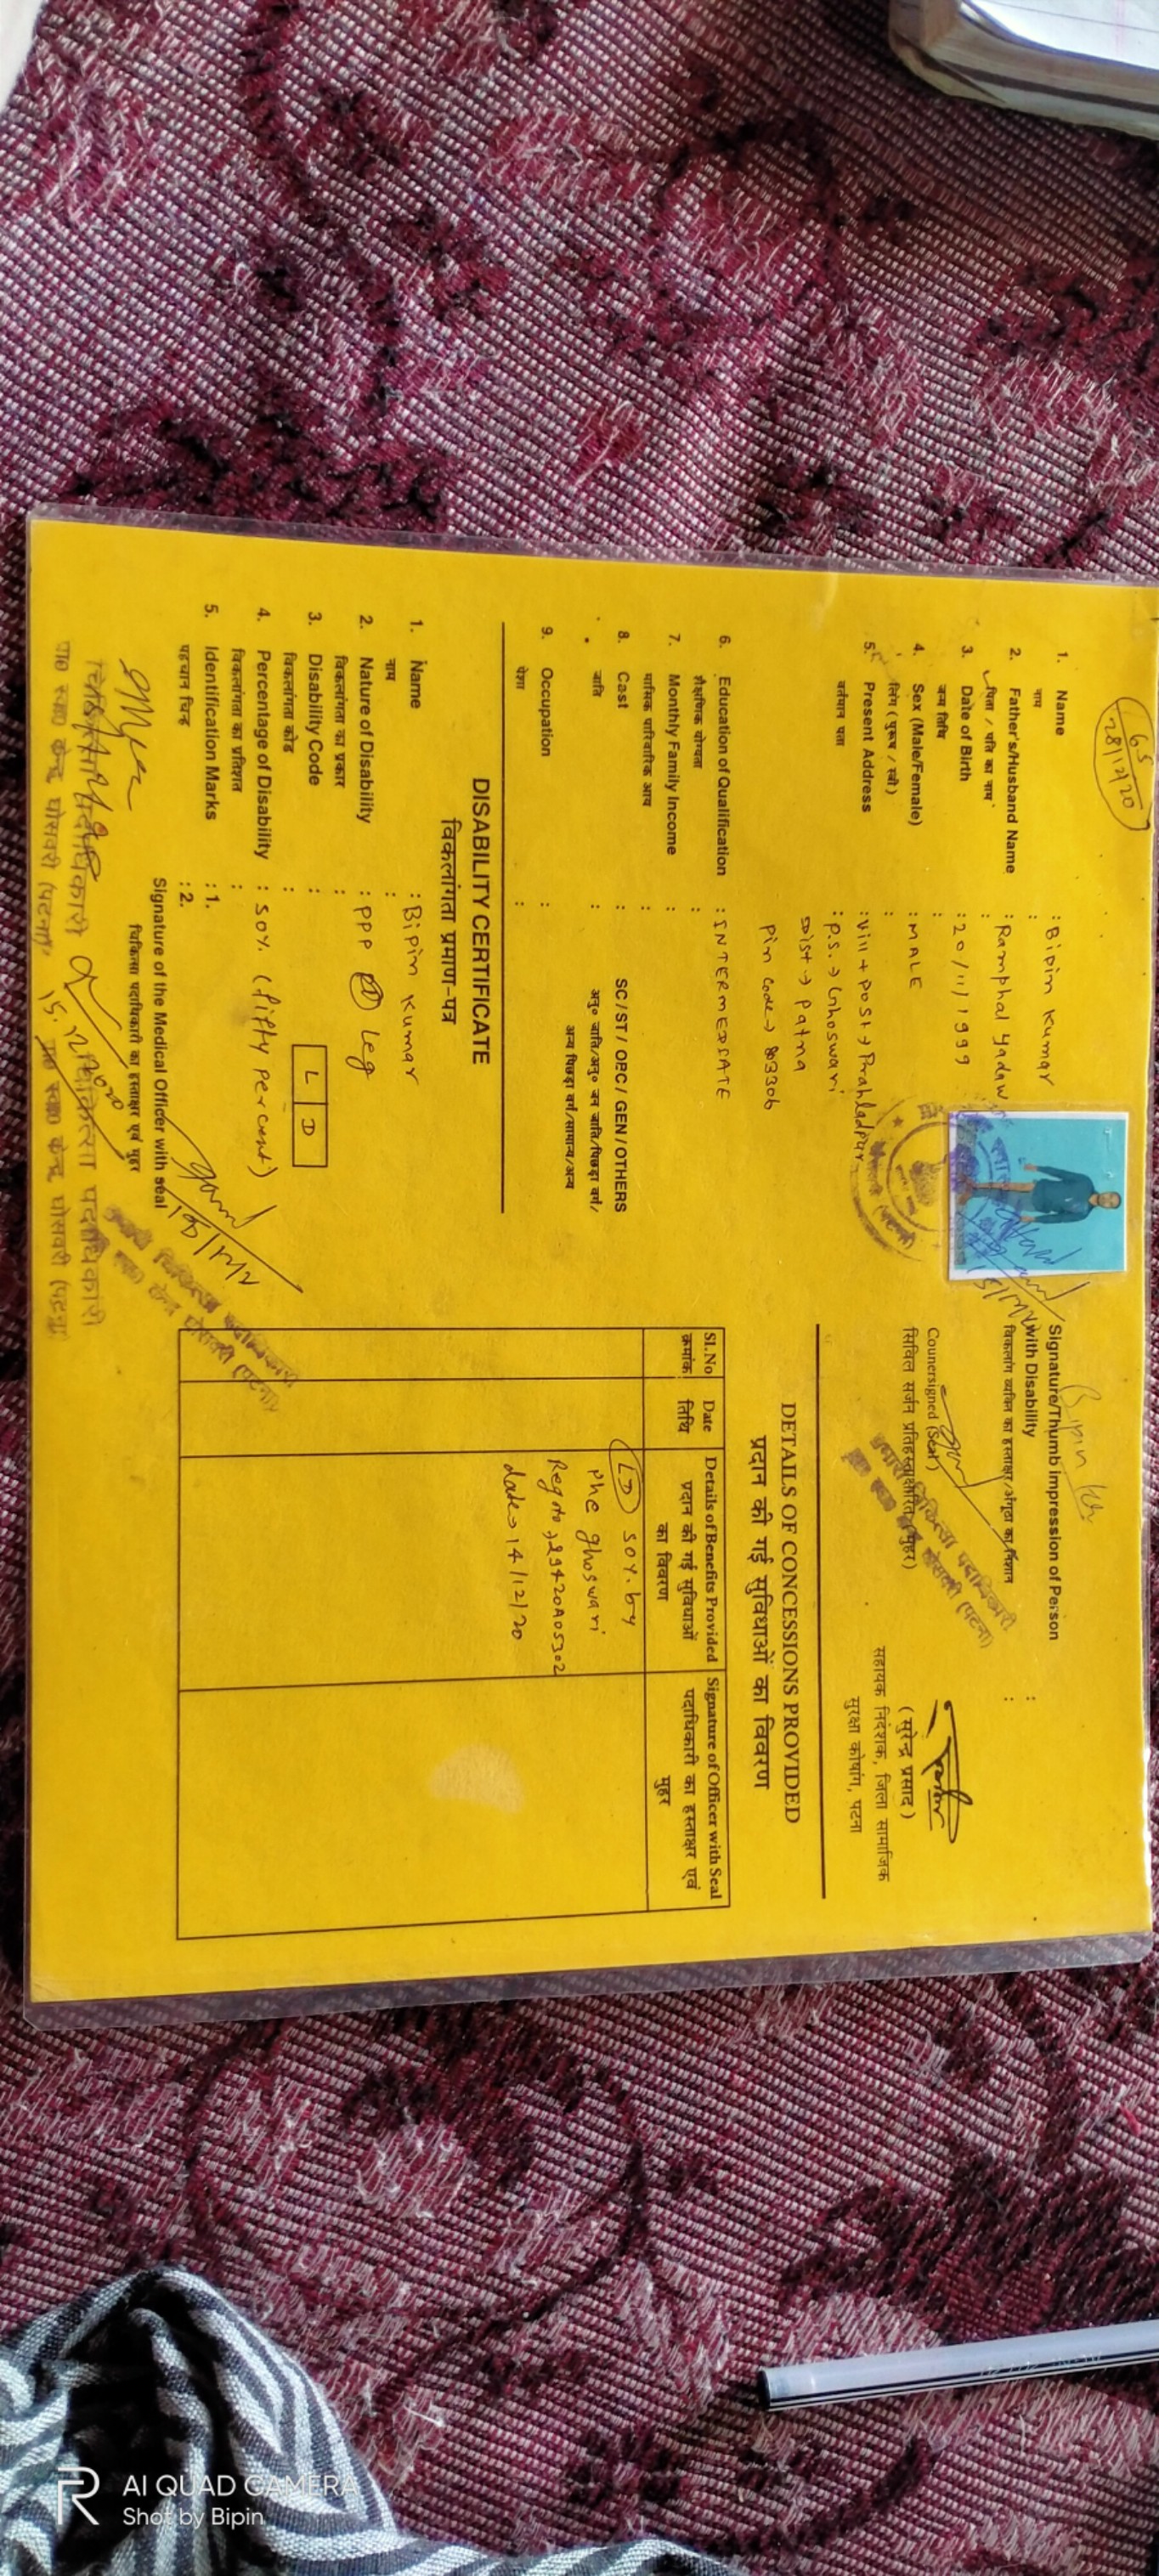 65
28/12/20
1. Name : Bipin Kumar
नाम :
2. Father's/Husband Name : Ramphal Yadaw
पिता / पति का नाम :
3. Date of Birth : 20/11/1999
जन्म तिथि :
4. Sex (Male/Female) : MALE
लिंग (पुरूष / स्त्री) :
5. Present Address : Vill + post → Prahladpur
वर्तमान पता : P.S. → Ghoswari
Dist → Patna
Pin Code → 803306
6. Education of Qualification : INTERMEDIATE
शैक्षणिक योग्यता :
7. Monthly Family Income :
मासिक पारिवारिक आय :
8. Cast : SC / ST / OPC / GEN / OTHERS
जाति : अनु० जाति/अनु० जन जाति/पिछड़ा वर्ग/
अन्य पिछड़ा वर्ग/सामान्य/अन्य
9. Occupation :
पेशा :
DISABILITY CERTIFICATE
विकलांगता प्रमाण-पत्र
1. Name : Bipin Kumar
नाम :
2. Nature of Disability : PPP Leg
विकलांगता का प्रकार :
3. Disability Code : L D
विकलांगता कोड :
4. Percentage of Disability : 50% (fifty percent)
विकलांगता का प्रतिशत :
5. Identification Marks : 1.
पहचान चिन्ह : 2.
Signature of the Medical Officer with seal
चिकित्सा पदाधिकारी का हस्ताक्षर एवं मुहर
चिकित्सा पदाधिकारी
प्रा० स्वा० केन्द्र घोसवरी (पटना)
15.12.2020
चिकित्सा पदाधिकारी
प्रा० स्वा० केन्द्र घोसवरी (पटना)
प्रभारी चिकित्सा पदाधिकारी
प्रा० स्वा० केन्द्र घोसवरी (पटना)
Signature/Thumb impression of Person :
with Disability
विकलांग व्यक्ति का हस्ताक्षर/अंगूठा का निशान :
Bipin
Counersigned (Seal)
सिविल सर्जन प्रतिहस्ताक्षरित (मुहर)
प्रभारी चिकित्सा पदाधिकारी
प्रा० स्वा० केन्द्र घोसवरी (पटना)
(सुरेन्द्र प्रसाद)
सहायक निदेशक, जिला सामाजिक
सुरक्षा कोषांग, पटना
DETAILS OF CONCESSIONS PROVIDED
प्रदान की गई सुविधाओं का विवरण
Sl.No Date Details of Benefits Provided Signature of Officer with Seal
क्रमांक तिथि प्रदान की गई सुविधाओं का विवरण पदाधिकारी का हस्ताक्षर एवं मुहर
LD 50% by
Phc ghoswari
Reg No → 29420A05302
date → 14/12/20
AI QUAD CAMERA
Shot by Bipin